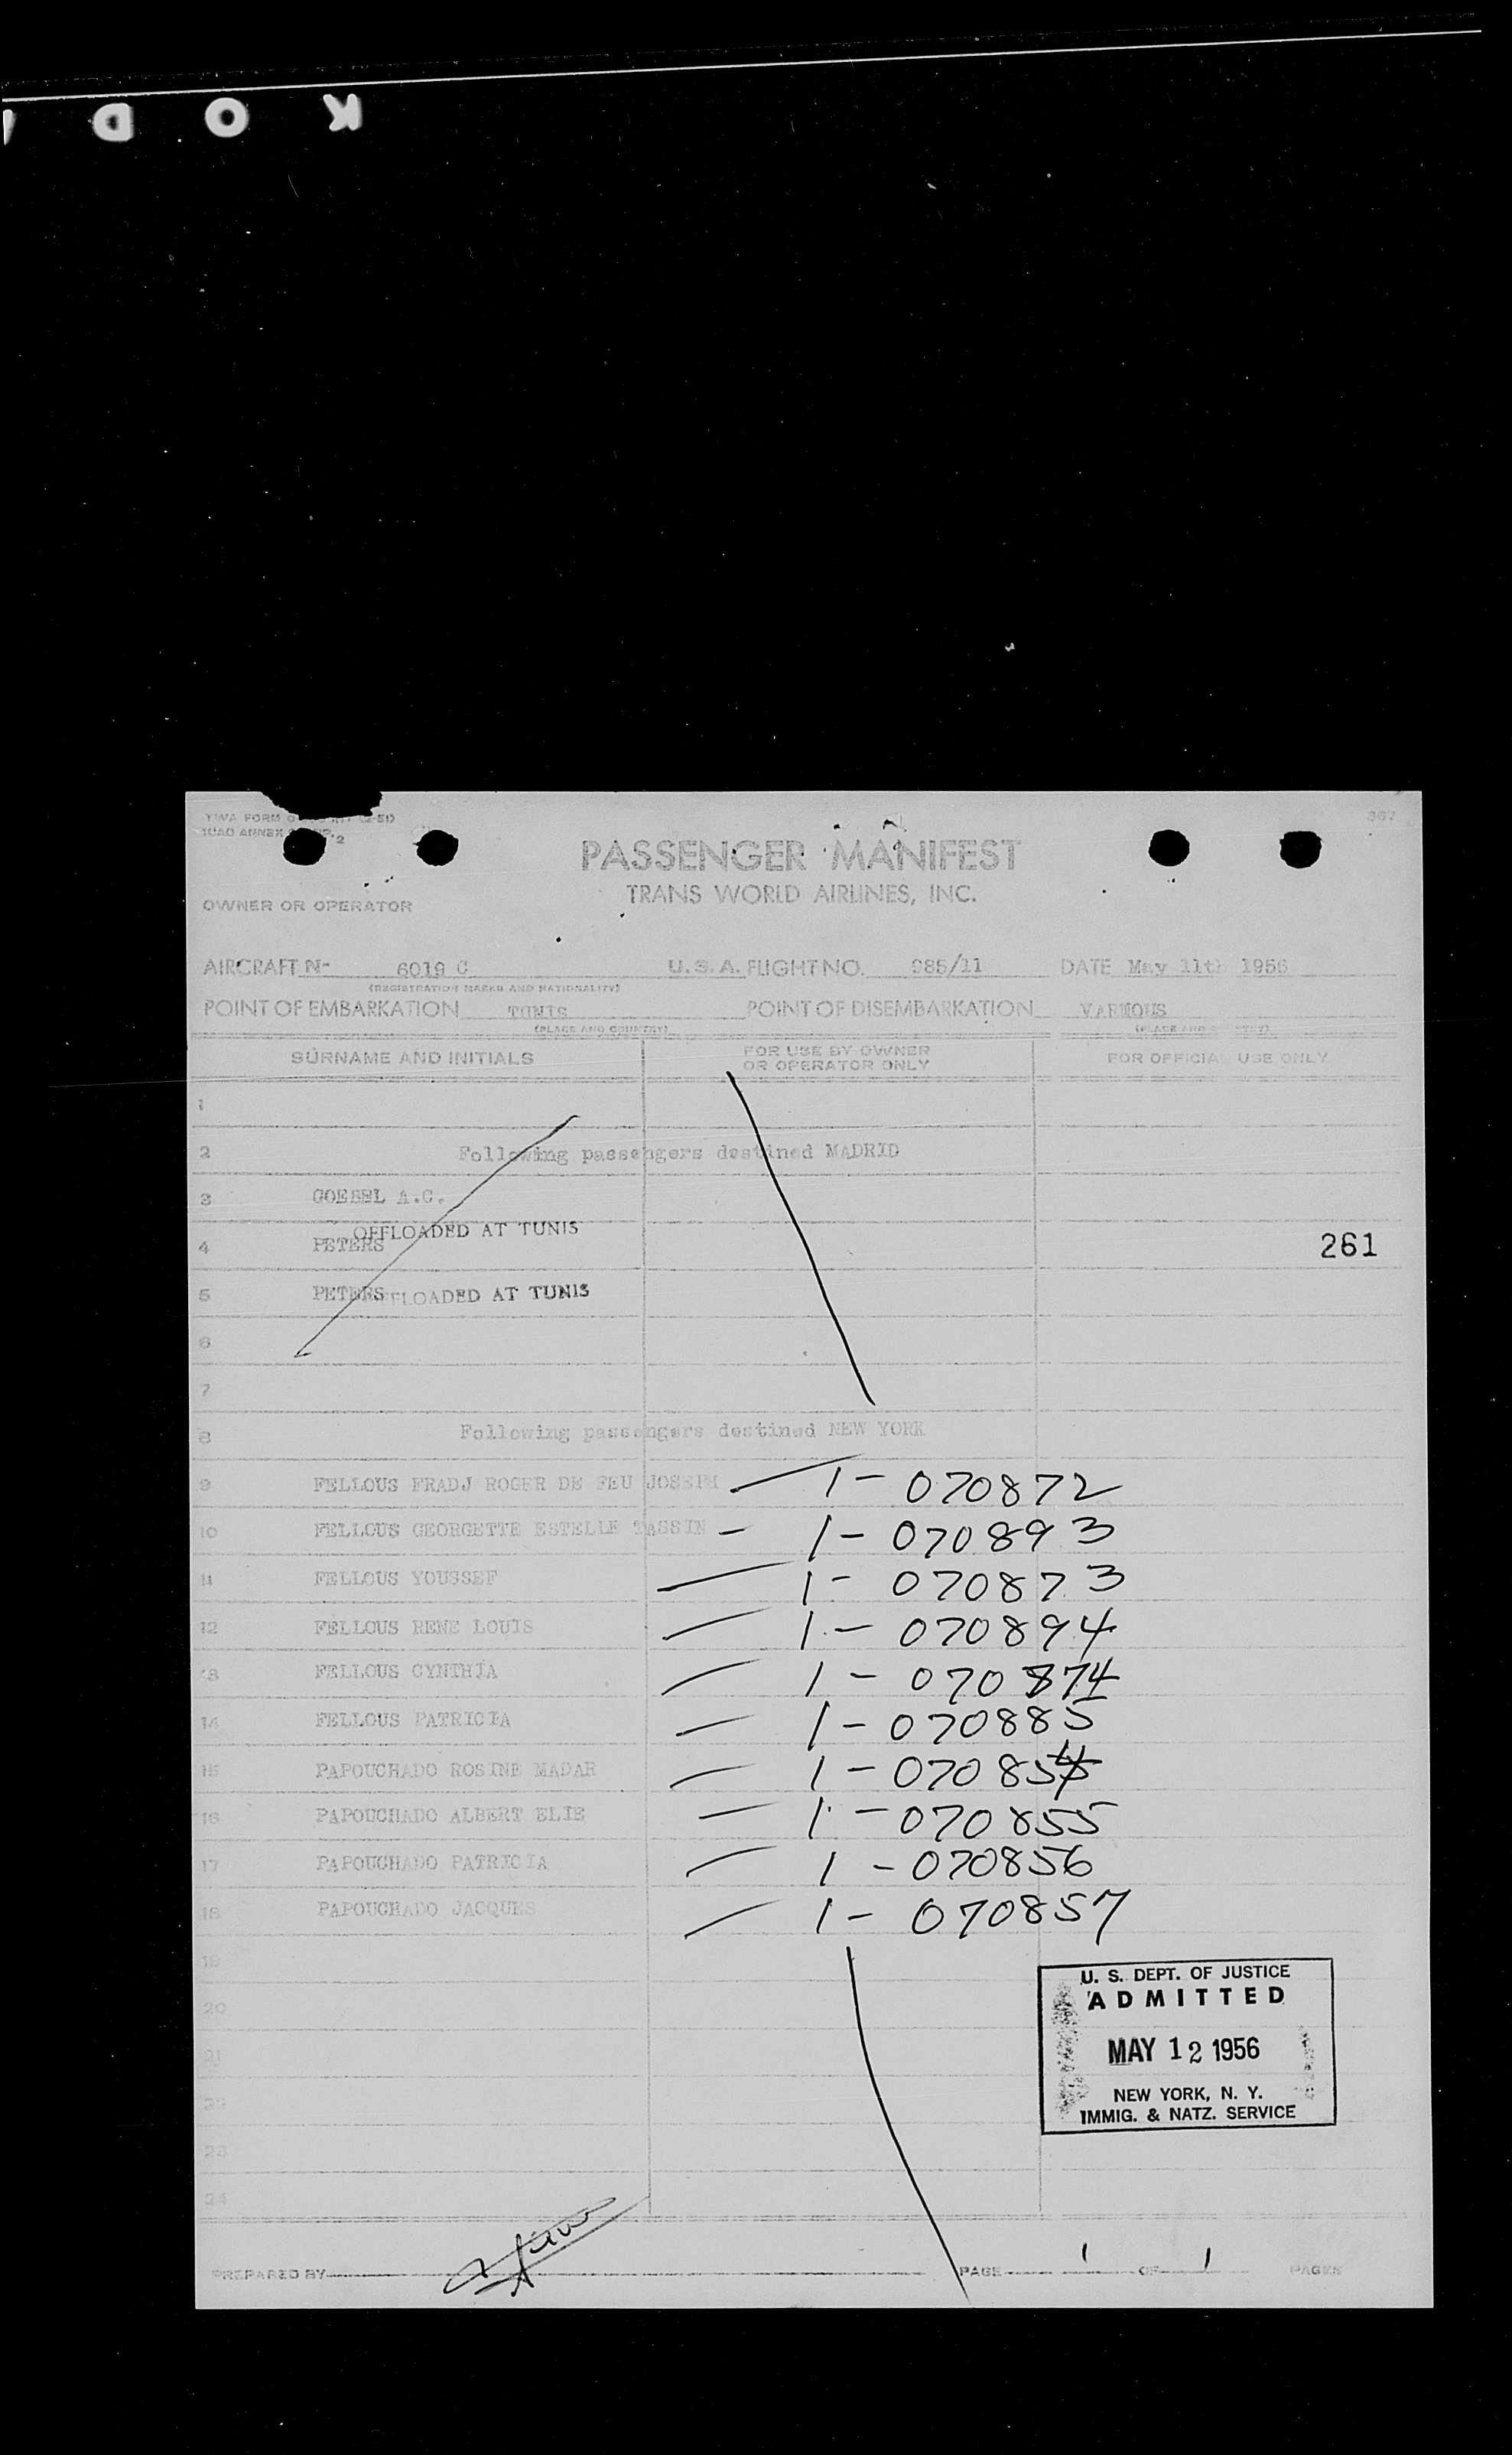 K O D
367
PASSENGER MANIFEST
TRANS WORLD AIRLINES, INC.
OWNER OR OPERATOR
AIRCRAFT N- 6019 C U.S.A. FLIGHT NO. 985/11 DATE May 11th 1956
(REGISTRATION MARKS AND NATIONALITY)
POINT OF EMBARKATION TUNIS POINT OF DISEMBARKATION VARIOUS
(PLACE AND COUNTRY) (PLACE AND COUNTRY)
SURNAME AND INITIALS FOR USE BY OWNER OR OPERATOR ONLY FOR OFFICIAL USE ONLY
1
2 Following passengers destined MADRID
3 GOEBEL A.C.
OFFLOADED AT TUNIS
4 PETERS 261
5 PETERS OFFLOADED AT TUNIS
6
7
8 Following passengers destined NEW YORK
9 FELLOUS FRADJ ROGER DE FEU JOSEPH 1-070872
10 FELLOUS GEORGETTE ESTELLE TASSIN 1-070893
11 FELLOUS YOUSSEF 1-070873
12 FELLOUS RENE LOUIS 1-070894
13 FELLOUS CYNTHIA 1-070874
14 FELLOUS PATRICIA 1-070885
15 PAPOUCHADO ROSINE MADAR 1-070854
16 PAPOUCHADO ALBERT ELIE 1-070855
17 PAPOUCHADO PATRICIA 1-070856
18 PAPOUCHADO JACQUES 1-070857
19
20
21
22
23
24
U. S. DEPT. OF JUSTICE
ADMITTED
MAY 12 1956
NEW YORK, N. Y.
IMMIG. & NATZ. SERVICE
PREPARED BY PAGE 1 OF 1 PAGES